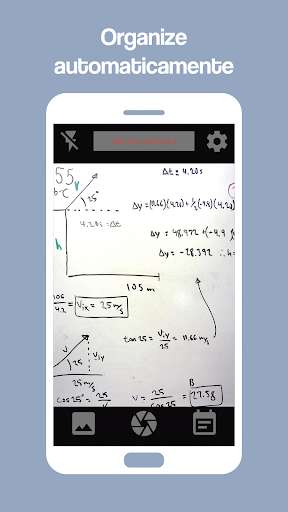 Organize
automaticamente
55
b-c
v
25°
Δt = 4.20s
Δy = (11.66)(4.20) + ½(-9.8)(4.20)
4.20s = Δt
Δy = 48.972 + (-4.9
h
Δy = -28.392 ∴ h =
105 m
= Vix = 25 m/s
tan 25 = Viy/25 = 11.66 m/s
v
Viy
25
25 m/s
cos 25° = 25/
v = 25/cos 25
B
27.58